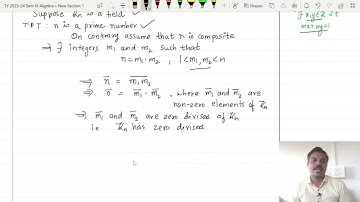 TY 2023-24 Sem VI Algebra » New Section 1
Suppose Z̄n is a field ✓
T.P.T: n is a prime number ✓
On contrary assume that n is composite
⇒ ∃ integers m1 and m2 such that
n = m1 · m2, 1 < m1, m2 < n
⇒ n̄ = m̄1m̄2
⇒ 0̄ = m̄1 · m̄2, where m̄1 and m̄2 are
non-zero elements of Z̄n
⇒ m̄1 and m̄2 are zero divisors of Z̄n
i.e. Z̄n has zero divisors
mx+ny=1